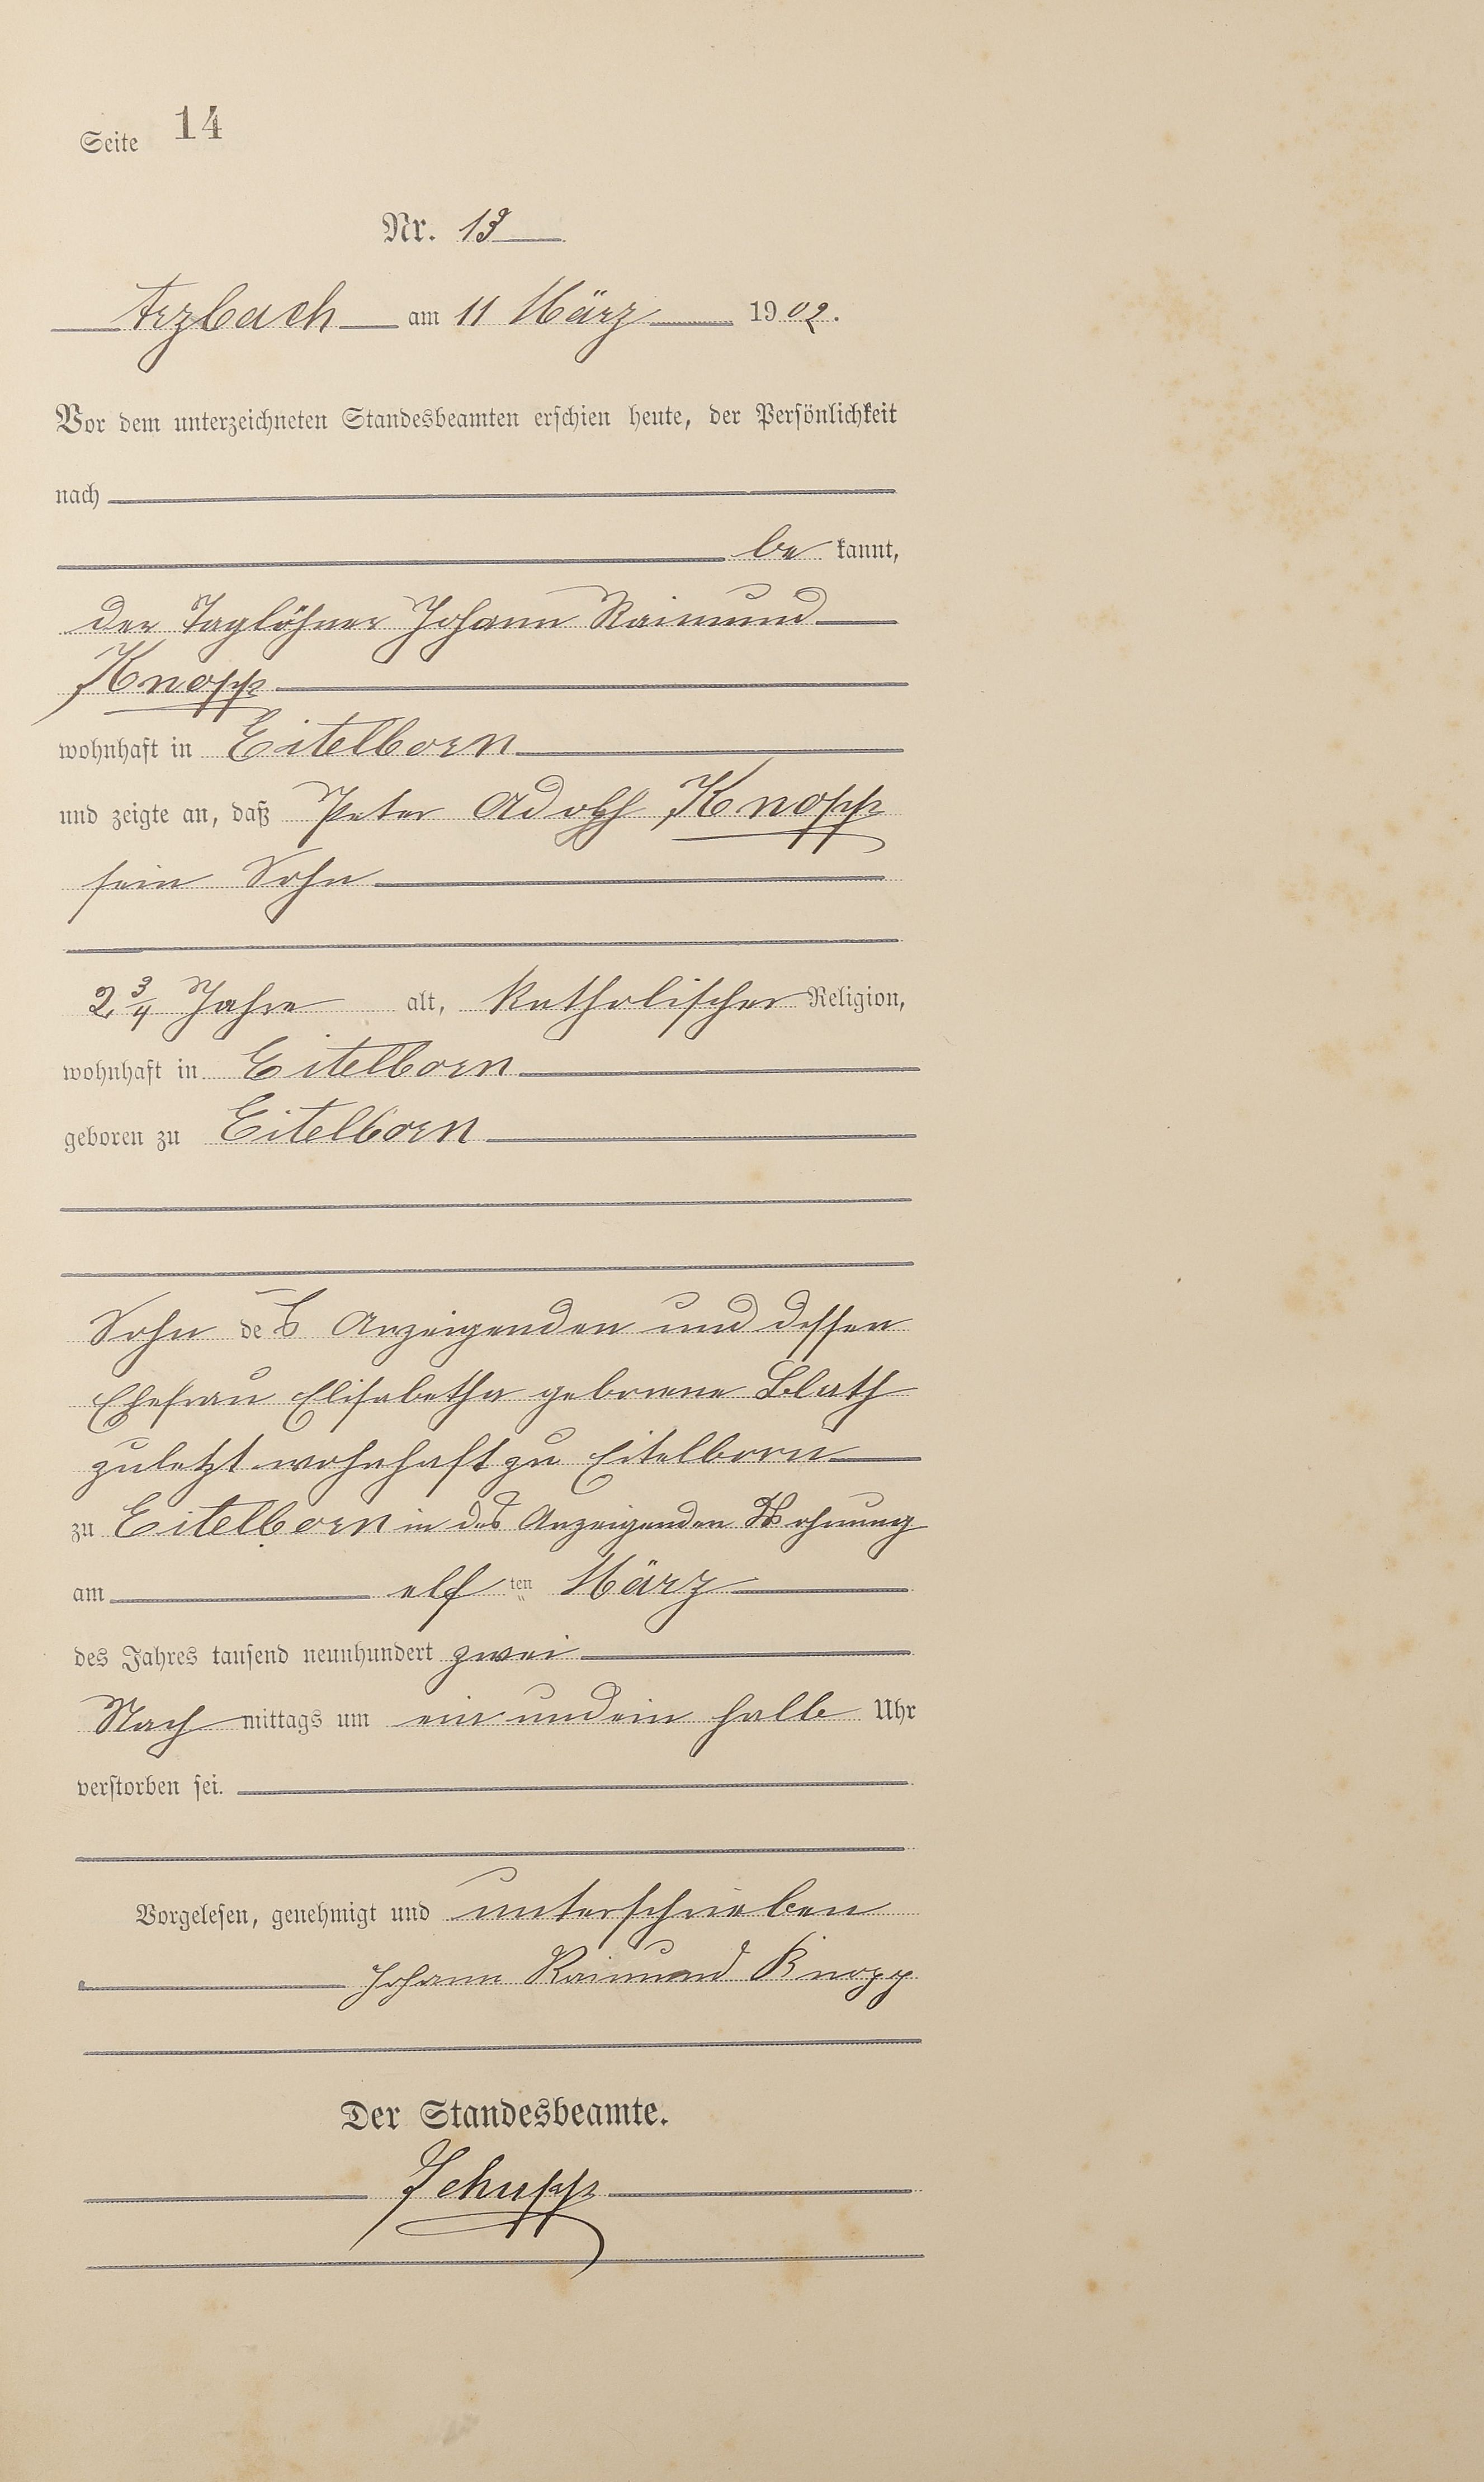 Seite 14
Nr. 13
Arzbach am 11 März 1902.
Vor dem unterzeichneten Standesbeamten erschien heute, der Persönlichkeit
nach
be kannt,
der Taglöhner Johann Raimund
Knopp
wohnhaft in Eitelborn
und zeigte an, daß Peter Adolf Knopp
sein Sohn
2 3/4 Jahre alt, katholischer Religion,
wohnhaft in Eitelborn
geboren zu Eitelborn
Sohn des Anzeigenden und dessen
Ehefrau Elisabetha geborene Blath
zuletzt wohnhaft zu Eitelborn
zu Eitelborn in des Anzeigenden Wohnung
am elf ten März
des Jahres tausend neunhundert zwei
Nach mittags um ein und ein halb Uhr
verstorben sei.
Vorgelesen, genehmigt und unterschrieben
Johann Raimund Knopp
Der Standesbeamte.
Schupp